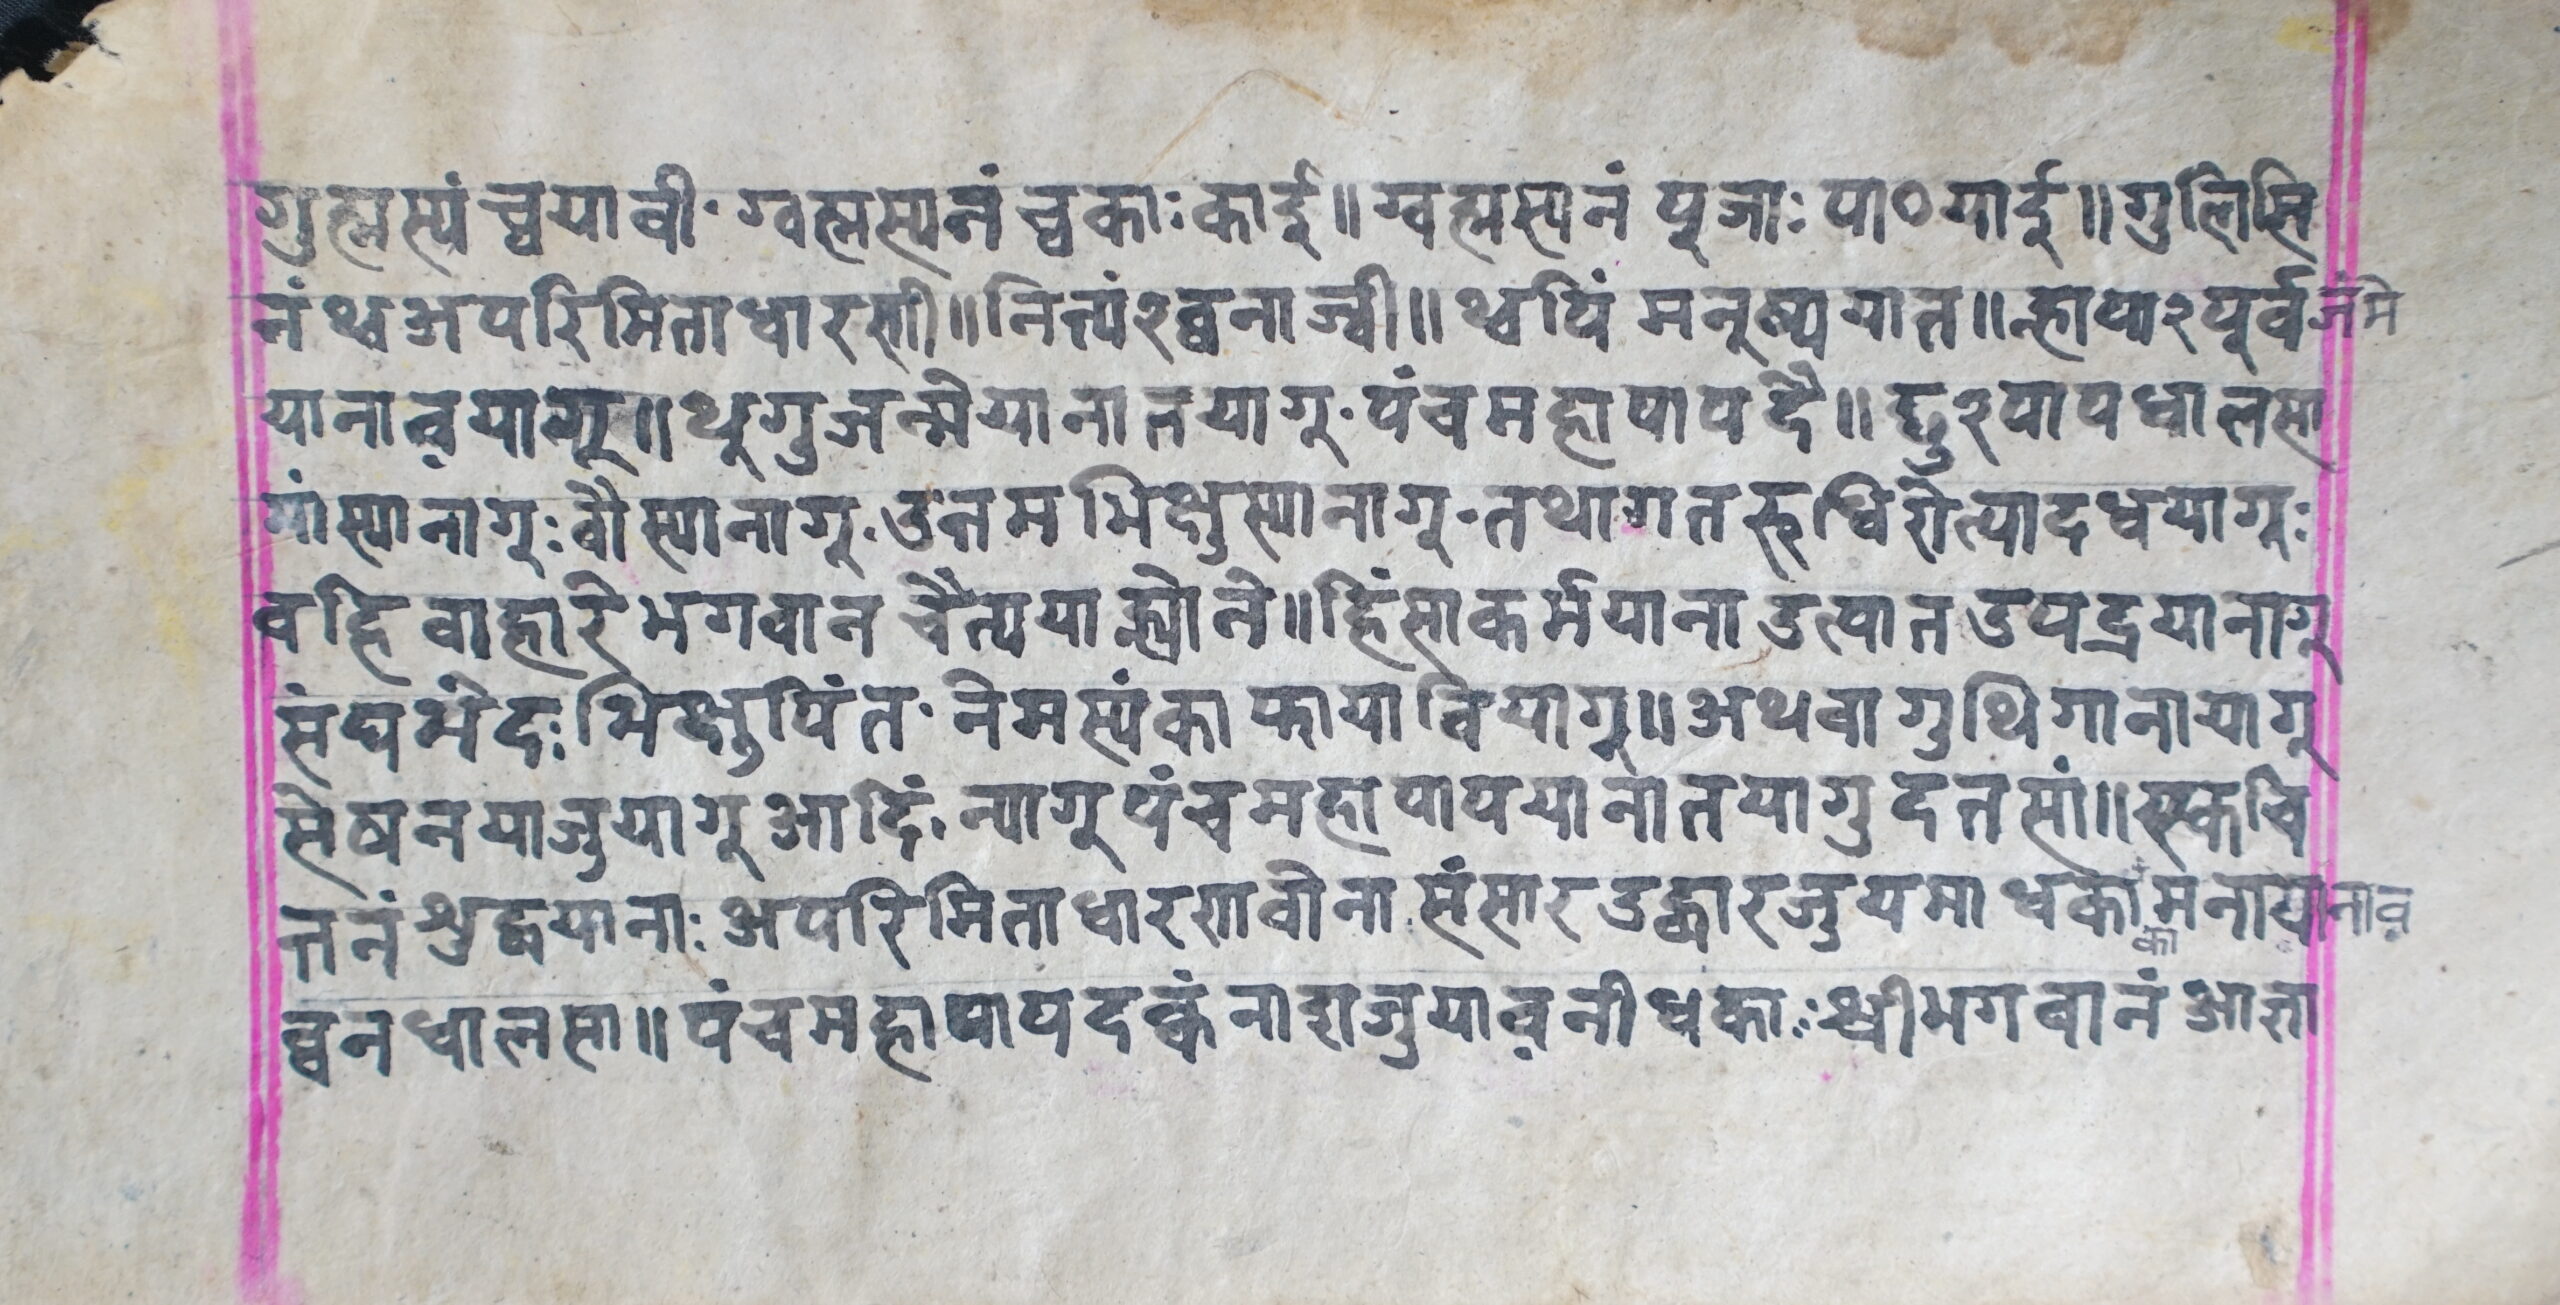 गुह्मस्यं च्वयावी· ग्वह्मस्यनं च्वकाः काई॥ ग्वह्मस्यनं पूजाः पा०याई॥ गुलिसि
नं थ्व अपरिमिताधारणी॥ नित्यं२ ब्वनाज्वी॥ थ्वपिं मनूष्ययात॥ ल्हापा२ पूर्वजंमे
यानाव़यागू॥ थूगुजन्मेयानातयागू· पंचमहापापदै॥ छु२ पापधालसा
मांस्यानागूः वौस्यानागू· उतमभिक्षुस्यानागू· तथागतरुधिरोत्पादधयागूः
वहिवाहारे भगवान चैत्यया ल्ह्योने॥ हिंसाकर्मयाना उत्पात उपद्रयानागू
संघभेदः भिक्षुपिंत· नेमस्यंका फायावियागू॥ अथवा गुथिगानायागू
सेषनयाजुयागू आदिं· न्यागू पंचमहापापयानातयागु दतसां॥ एकचि
त्तनं श्रुद्धयानाः अपरिमिताधारणी वोना संसार उद्धारजुयमा धका मनायानाव़
ब्वनधालसा॥ पंचमहापापदक्वं नाशजुयाव़नी धकाः श्रीभगवानं आज्ञा